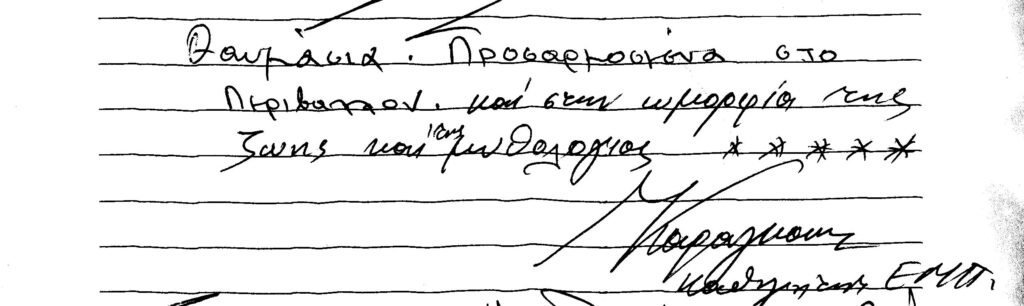 Θαυμάσια. Προσαρμοσμένα στο
Περιβαλλον. καί στην ωμορφιά της
ζωης και της μυθολογιας * * * * *
καθηγητης ΕΜΠ.